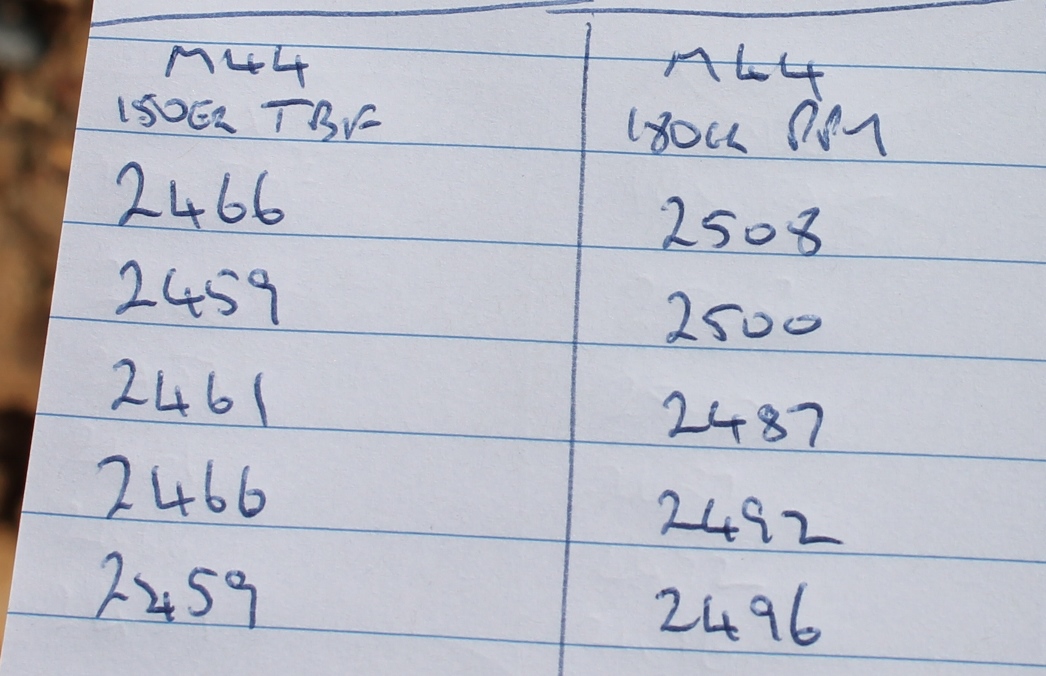 M44
150GR TBF
2466
2459
2461
2466
2459
M44
180GR PPM
2508
2500
2487
2492
2496